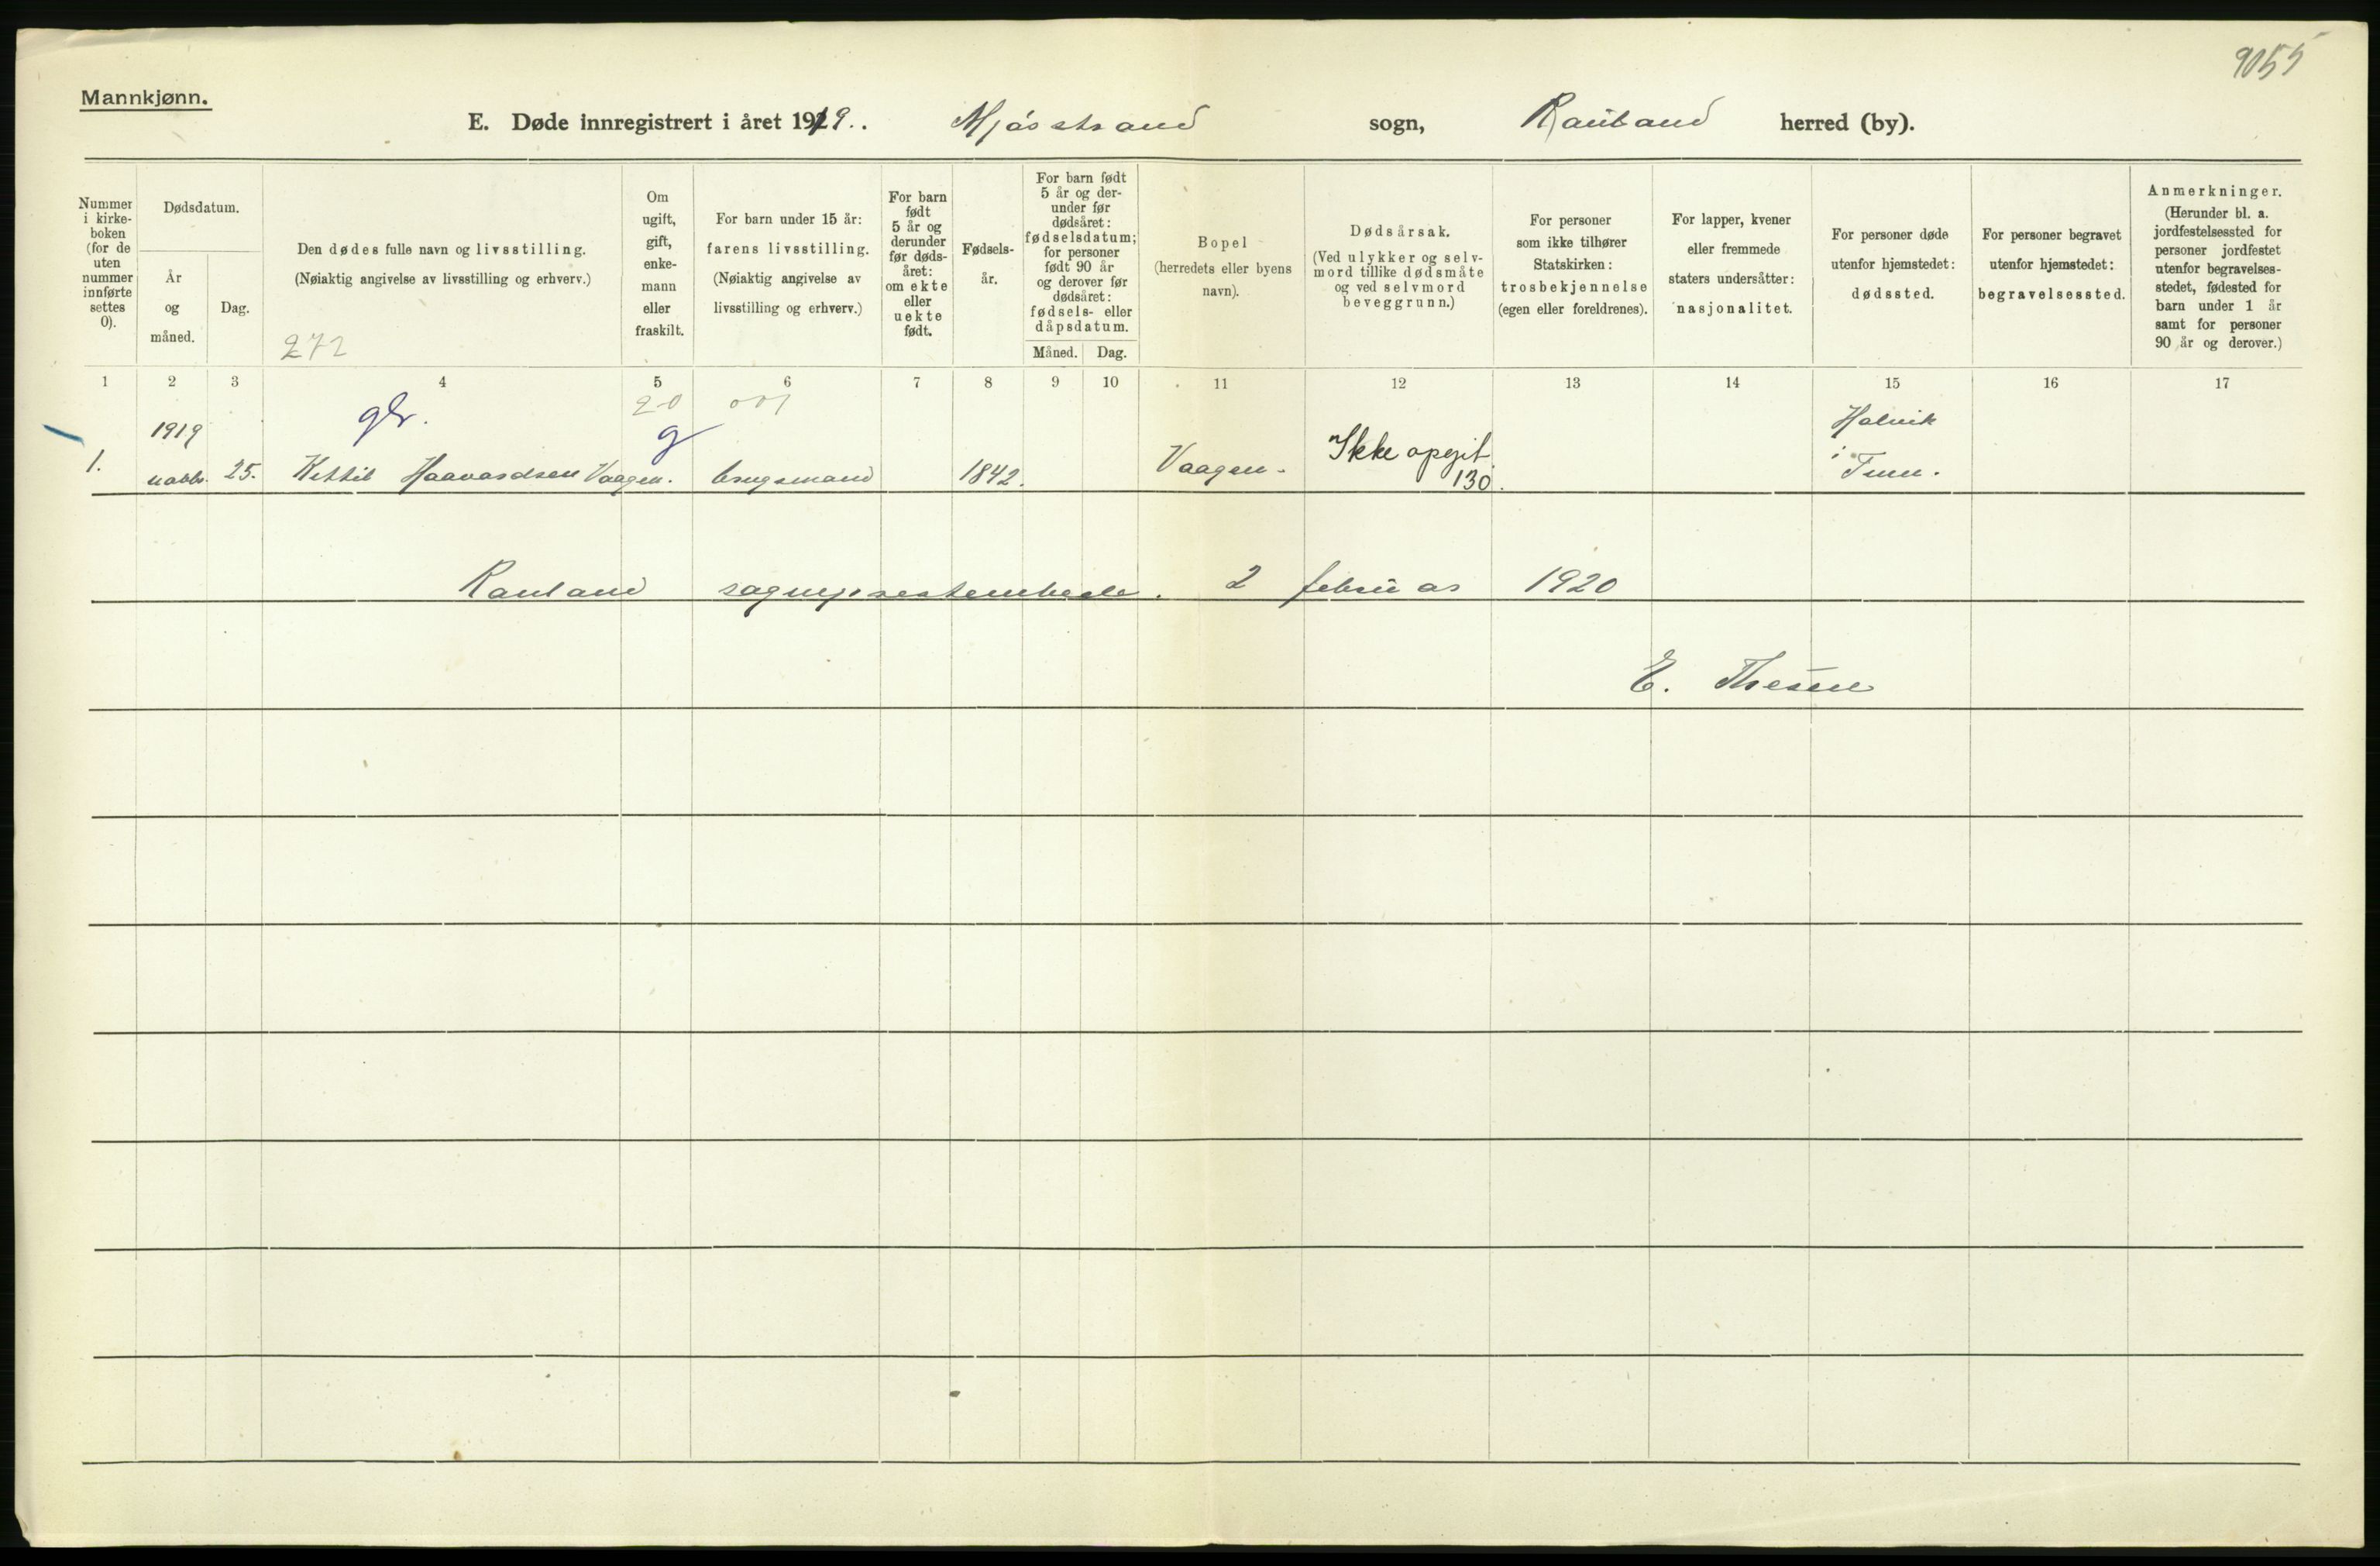 9055
Mannkjønn.
E. Døde innregistrert i året 1919. Mjösstrand sogn, Rauland herred (by).
Nummer i kirke-boken (for de uten nummer innførte settes 0).
Dødsdatum.
År og måned.
Dag.
Den dødes fulle navn og livsstilling.
(Nøiaktig angivelse av livsstilling og erhverv.)
272
Om ugift, gift, enke-mann eller fraskilt.
For barn under 15 år:
farens livsstilling.
(Nøiaktig angivelse av livsstilling og erhverv.)
For barn født 5 år og derunder før døds-året: om ekte eller uekte født.
Fødsels-år.
For barn født 5 år og der-under før dødsåret: fødselsdatum; for personer født 90 år og derover før dødsåret: fødsels- eller dåpsdatum.
Måned. Dag.
Bopel
(herredets eller byens navn).
Dødsårsak.
(Ved ulykker og selv-mord tillike dødsmåte og ved selvmord beveggrunn.)
For personer som ikke tilhører Statskirken: trosbekjennelse (egen eller foreldrenes).
For lapper, kvener eller fremmede staters undersåtter: nasjonalitet.
For personer døde utenfor hjemstedet: dødssted.
For personer begravet utenfor hjemstedet: begravelsessted.
Anmerkninger.
(Herunder bl. a. jordfestelsessted for personer jordfestet utenfor begravelses-stedet, fødested for barn under 1 år samt for personer 90 år og derover.)
1 2 3 4 5 6 7 8 9 10 11 12 13 14 15 16 17
20 001
1919 g Ikke opgit Halvik
1. 25. Kittil Haavardsen Vaagen. brugsmand 1842. Vaagen. 130. i Tinn.
Rauland sogneprestembede. 2 februar 1920
E. Thesen